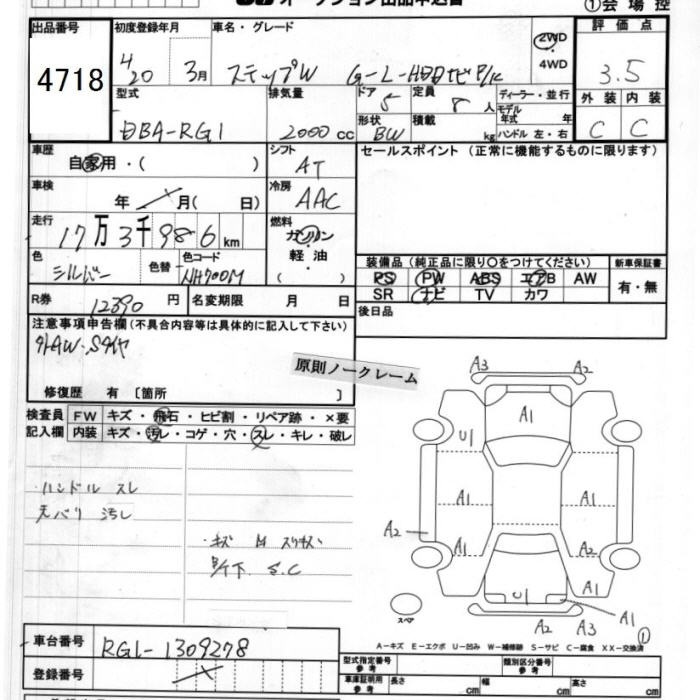 オークション出品申込書 ①会場控
出品番号 初度登録年月 車名・グレード 評価点
4718 H20 3月 ステップW G-L-HDDナビP/K 2WD 4WD 3.5
型式 排気量 ドア 定員 ディーラー・並行 外装 内装
DBA-RG1 2000cc 5 8人 モデル年式 年 C C
形状 BW 積載 kg ハンドル 左・右
車歴 自家用・( ) シフト AT セールスポイント (正常に機能するものに限ります)
車検 年 月( 日) 冷房 AAC
走行 17万3千986km 燃料 ガソリン 軽油 ( )
色 シルバー 色替 色コード NH700M
装備品 (純正品に限り○をつけてください) 新車保証書
PS PW ABS エアB AW 有・無
SR ナビ TV カワ
R券 12390円 名変期限 月 日 後日品
注意事項申告欄(不具合内容等は具体的に記入して下さい)
社外AW.Sタイヤ
原則ノークレーム
修復歴 有 〔箇所 〕
検査員 FW キズ・飛石・ヒビ割・リペア跡・×要
記入欄 内装 キズ・汚レ・コゲ・穴・スレ・キレ・破レ
ハンドル スレ
天バリ 汚し
・キズ M スリキズ
下 S.C
A3 A2
A1
U1
A1 A1
A2 A1 A2
U1 A1
A1
A2 A3 ①
スペア
A－キズ E－エクボ U－凹み W－補修跡 S－サビ C－腐食 XX－交換済
車台番号 RG1-1309278
登録番号
型式指定番号 参考 類別区分番号 参考
車庫証明用 参考 長さ cm 幅 cm 高さ cm